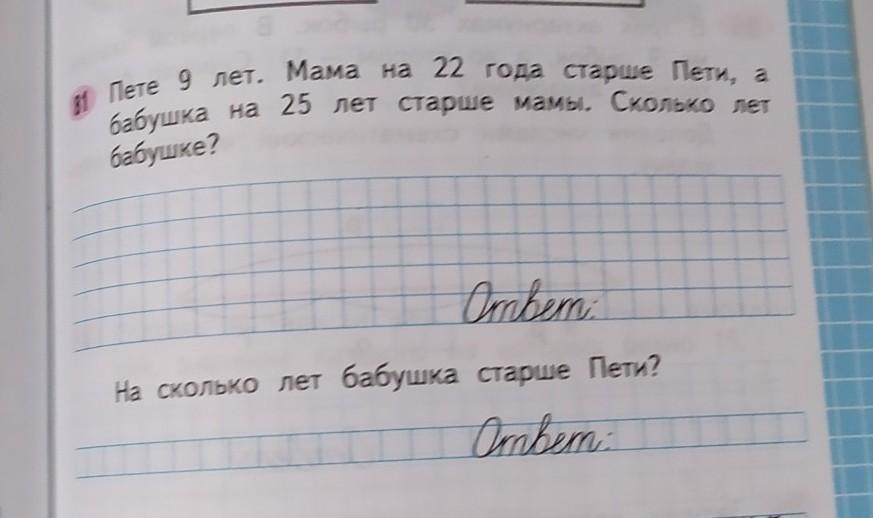 81 Пете 9 лет. Мама на 22 года старше Пети, а
бабушка на 25 лет старше мамы. Сколько лет
бабушке?
Ответ:
На сколько лет бабушка старше Пети?
Ответ: